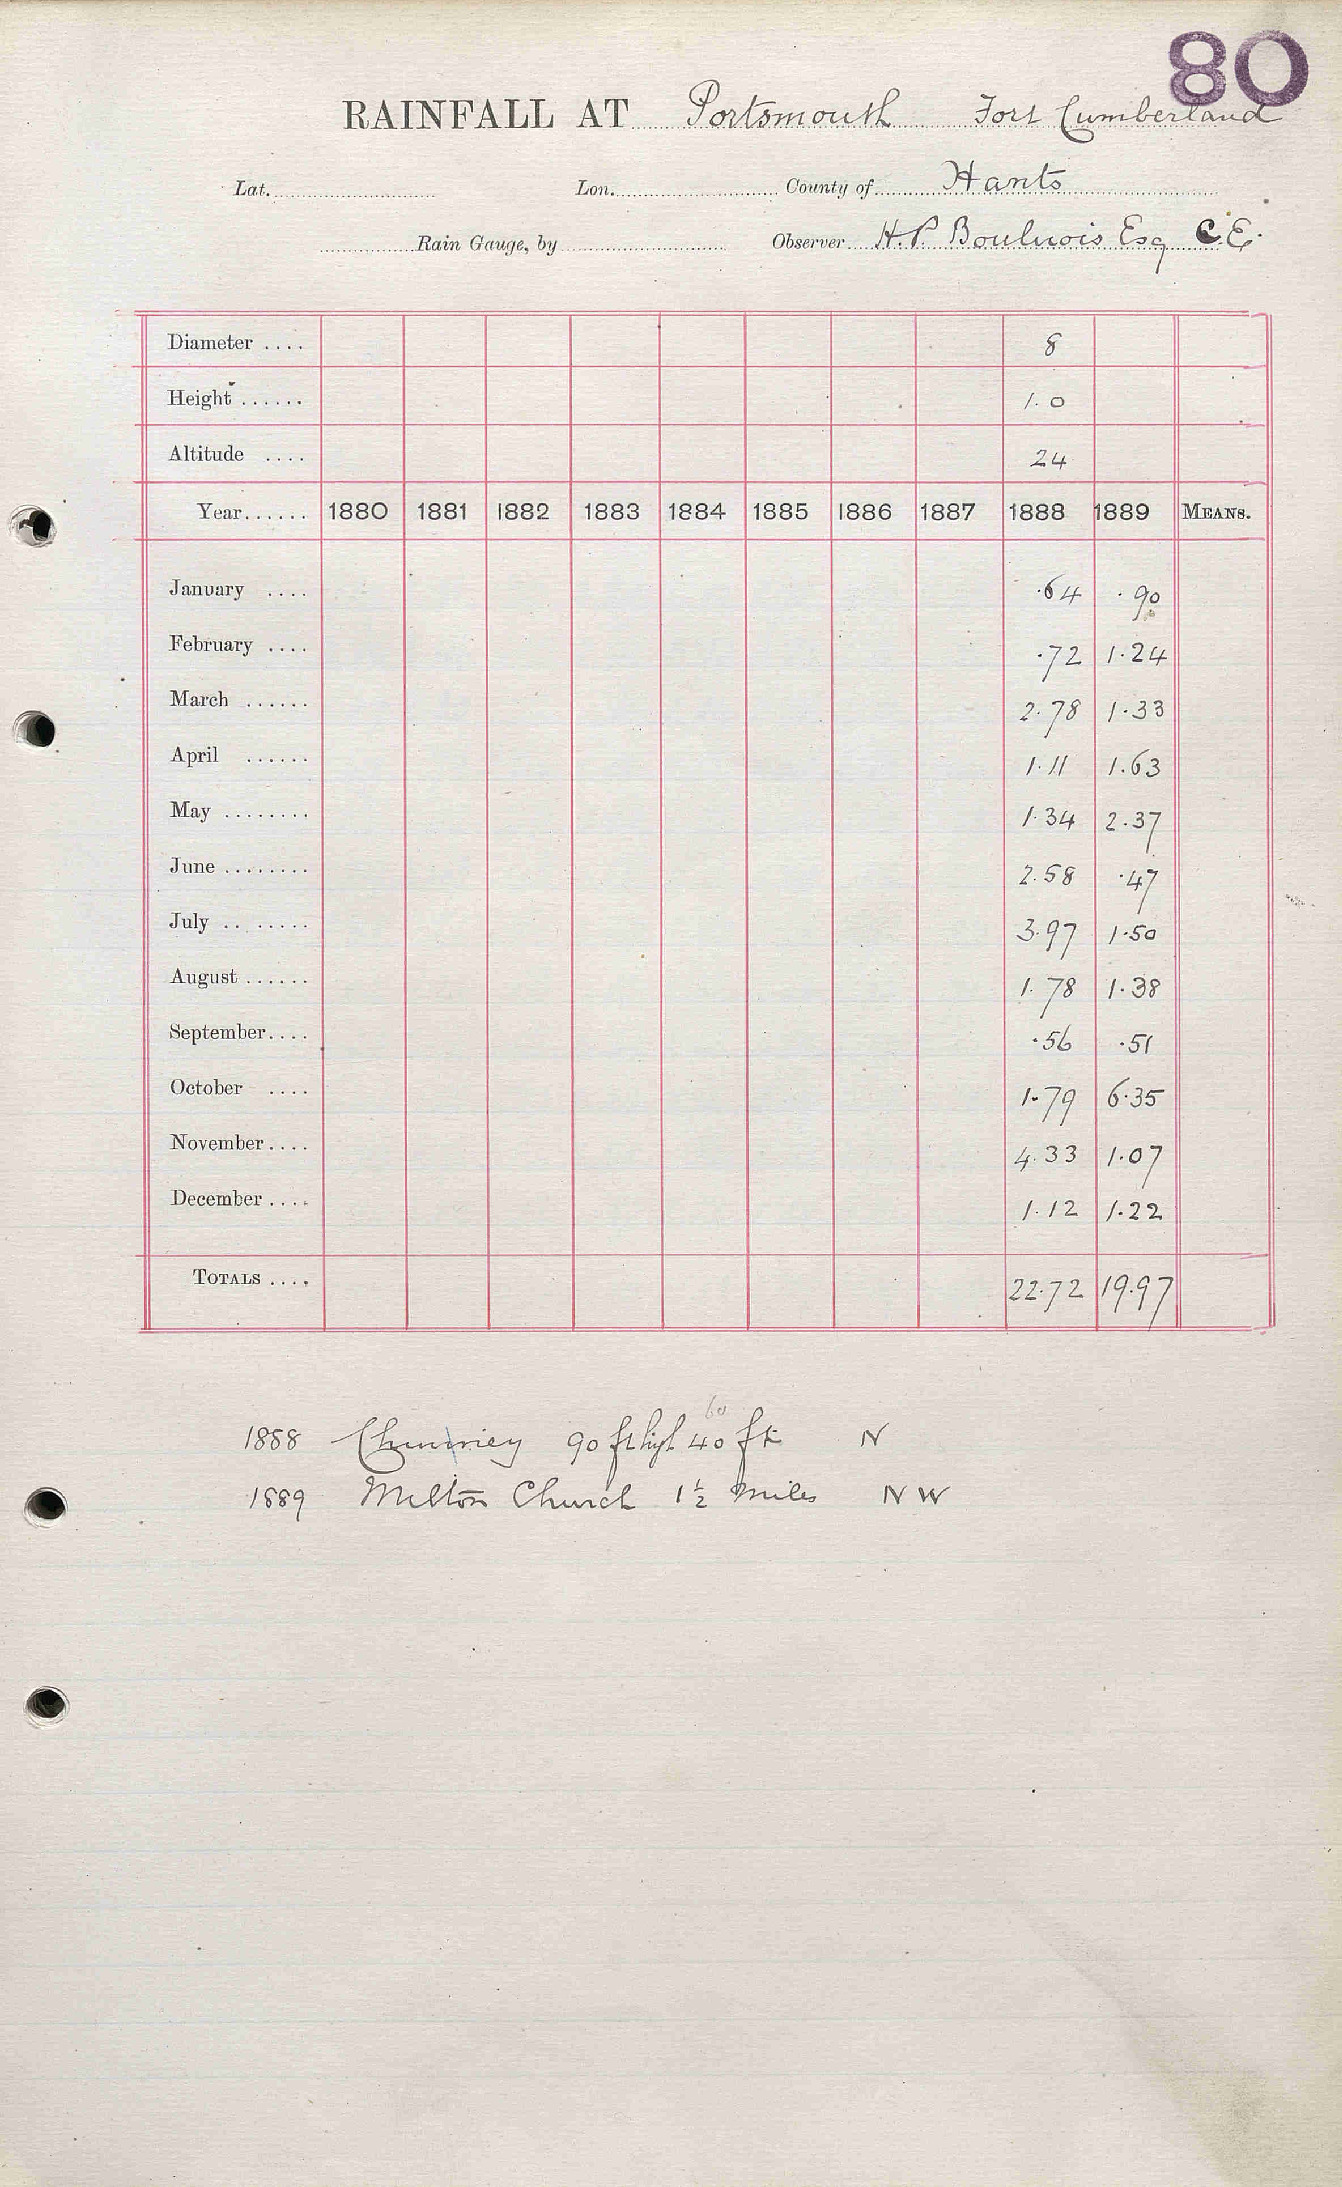 80
RAINFALL AT Portsmouth Fort Cumberland
Lat. Lon. County of Hants
Rain Gauge, by Observer H.P. Boulnois Esq C.E.
Diameter .... 8
Height ...... 1.0
Altitude .... 24
Year...... 1880 1881 1882 1883 1884 1885 1886 1887 1888 1889 MEANS.
January .... .64 .90
February .... .72 1.24
March ...... 2.78 1.33
April ...... 1.11 1.63
May ........ 1.34 2.37
June ........ 2.58 .47
July ........ 3.97 1.50
August ...... 1.78 1.38
September.... .56 .51
October .... 1.79 6.35
November.... 4.33 1.07
December.... 1.12 1.22
TOTALS .... 22.72 19.97
60
1888 Chimney 90 ft high 40 ft N
1889 Milton Church 1½ miles NW